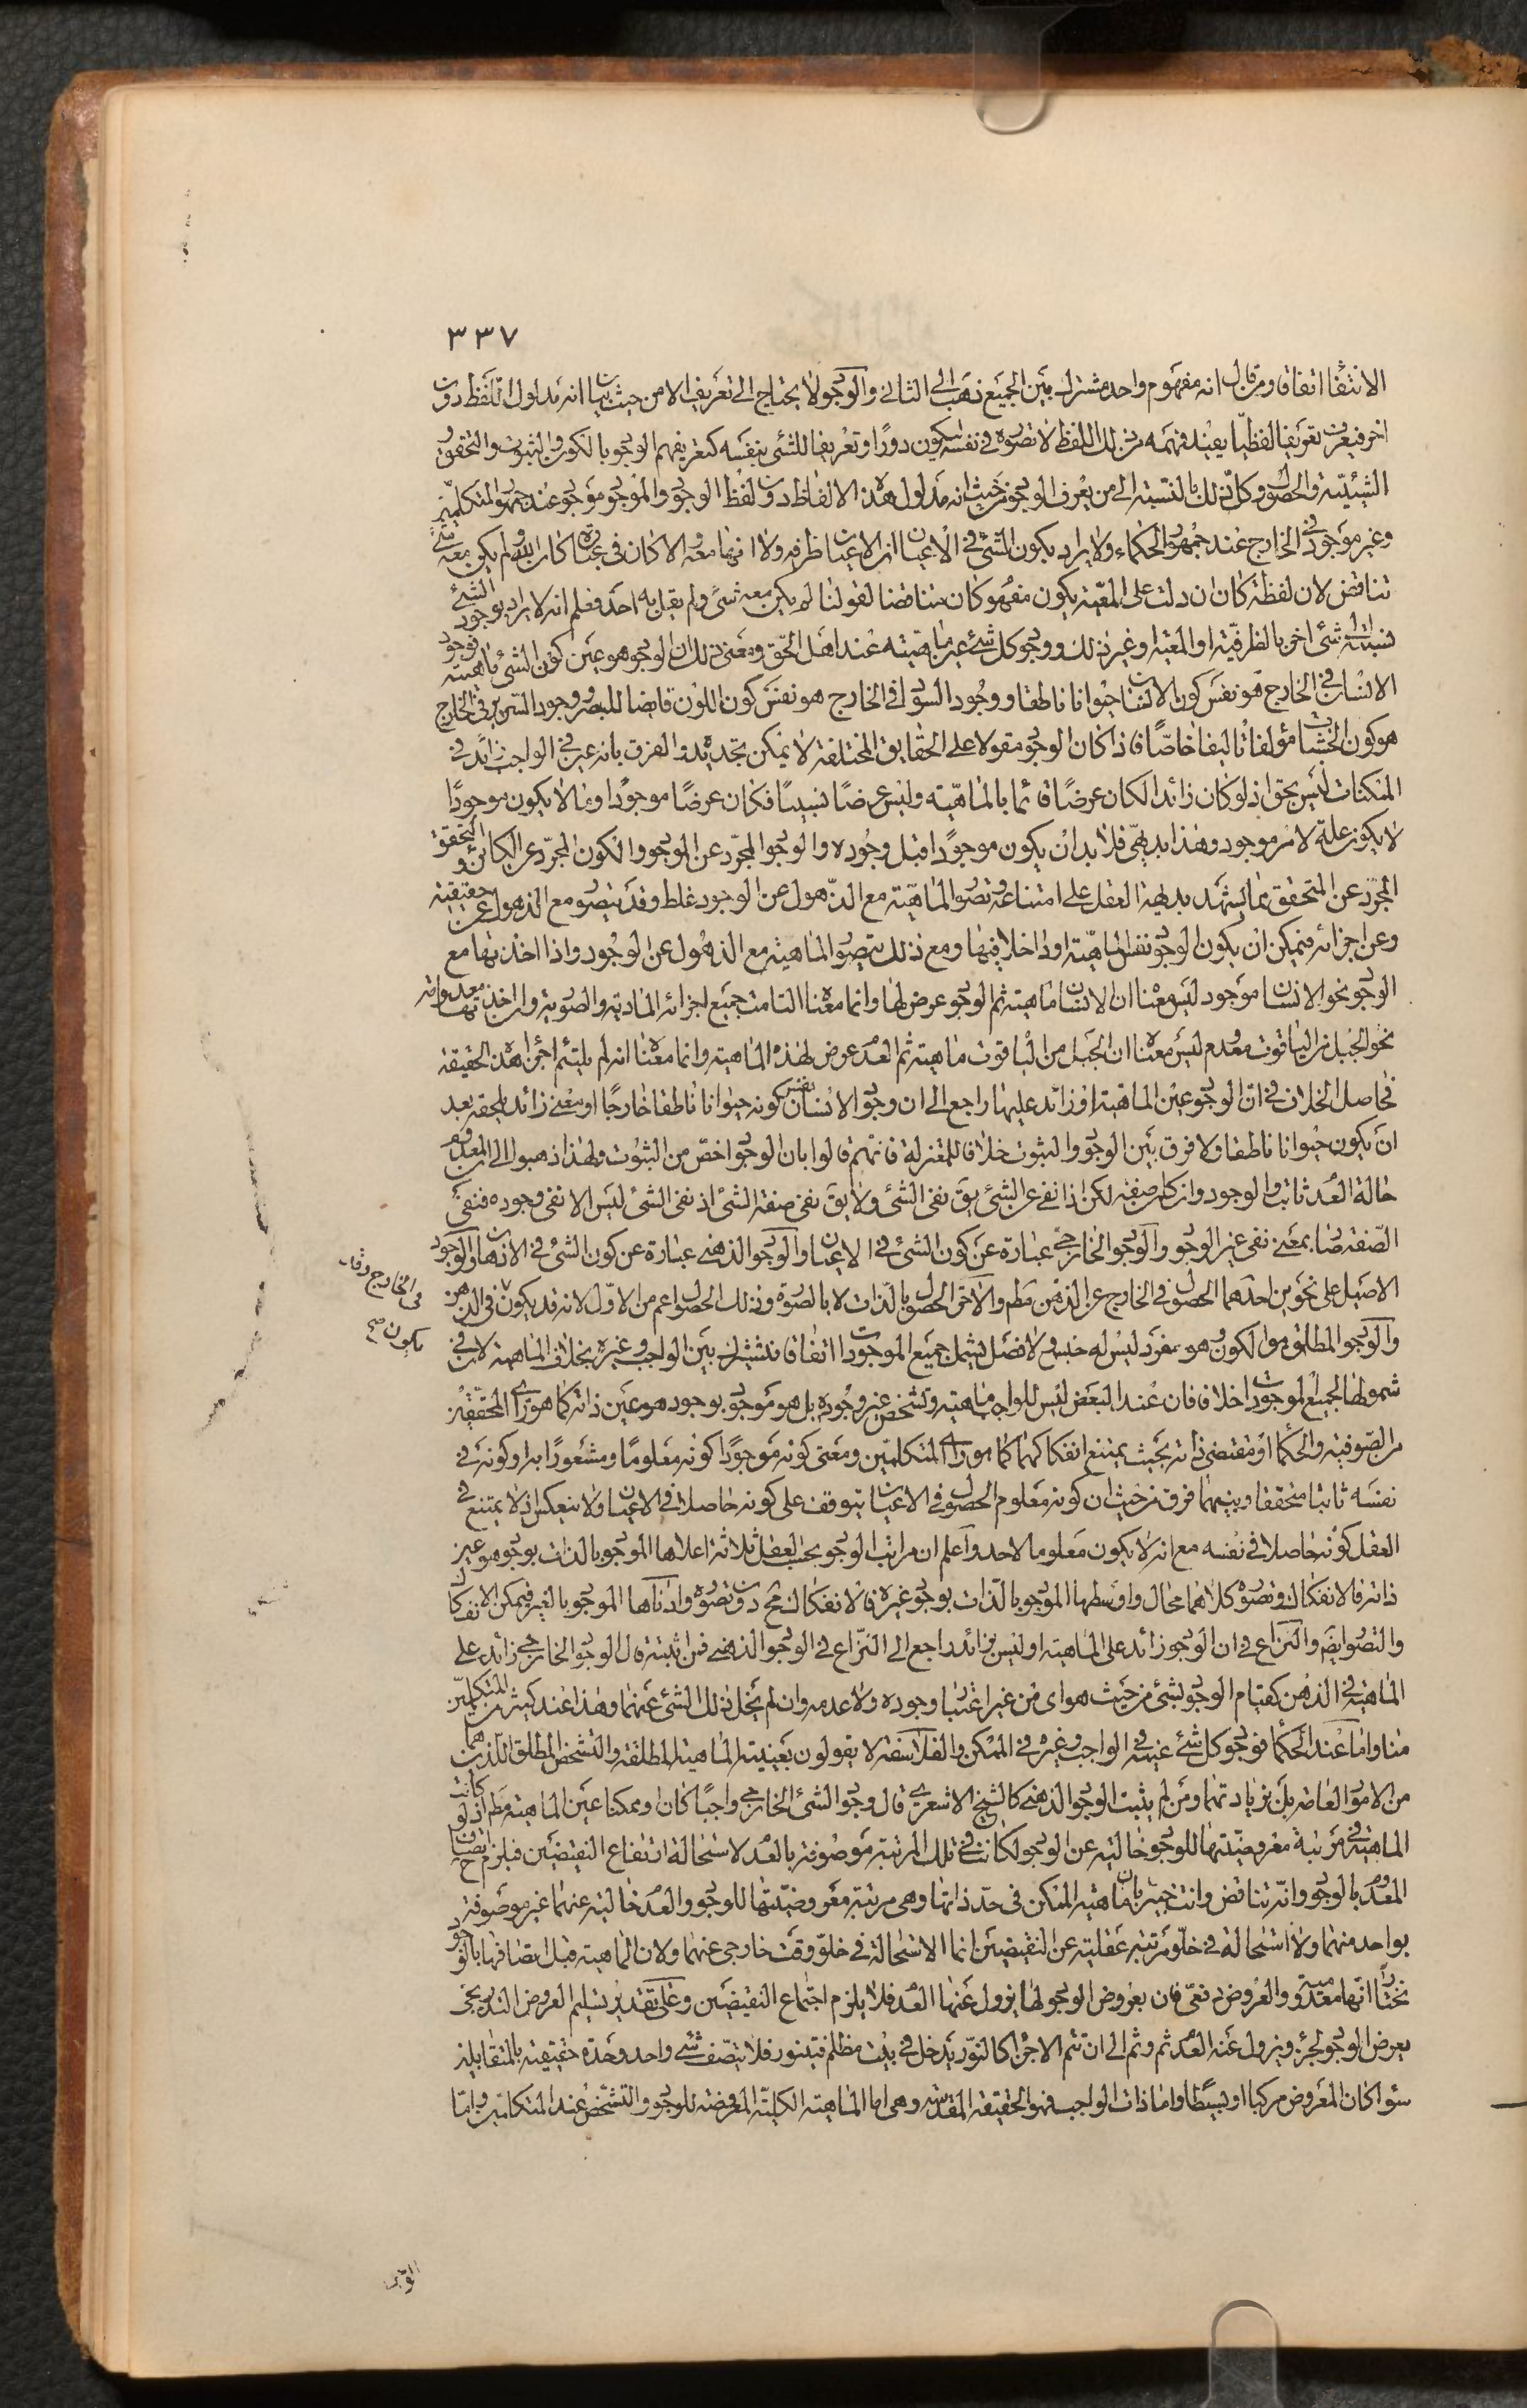 ٣٣٧
الانتفا اتفاقا ومن قال انه مفهوم واحد مشترك بين الجميع ذهب الى الثانى والوجود لا يحتاج الى تعريف الا من حيث بيان انه مدلول اللفظ دون
اخر فيعرف تعريفا لفظيا يفيد فهمه من ذلك اللفظ لا تصوره فى نفسه ليكون دورا وتعريفا للشئ بنفسه كتعريفهم الوجود بالكون والثبوت والتحقق و
الشيئية والحصول وكل ذلك بالنسبة الى من يعرف الوجود من حيث انه مدلول هذه الالفاظ دون لفظ الوجود والموجود موجود عند جمهور المتكلمين
وغير موجود فى الخارج عند جمهور الحكماء ولا يراد بكون الشئ فى الاعيان ان الاعيان ظرفه ولا انهما معه والا كان فى عبارة كان الله ولم يكن معه شئ
تناقض لان لفظة كان ان دلت على المعية يكون مفهوم كان مناقضا لقولنا لم يكن معه شئ ولم يقل به احد فعلم انه لا يراد بوجود الشئ
نسبته الى شئ اخر بالظرفية او المعية او غير ذلك ووجود كل شئ عين ماهيته عند اهل الحق ومعنى ذلك ان الوجود هو عين كون الشئ ماهية فوجود
الانسان فى الخارج هو نفس كون الانسان حيوانا ناطقا ووجود السواد فى الخارج هو نفس كون اللون قابضا للبصر ووجود السرير فى الخارج
هو كون الخشبات مؤلفا تاليفا خاصا فاذا كان الوجود مقولا على الحقايق المختلفة لا يمكن تحديده والفرق بانه عين فى الواجب زائد فى
الممكنات ليس بحق اذ لو كان زائدا لكان عرضا قائما بالماهية وليس عرضا نسبيا فكان عرضا موجودا وما لا يكون موجودا
لا يكون علة لامر موجود وهذا بديهى فلا بد ان يكون موجودا قبل وجوده والوجود المجرد عن الموجود والكون المجرد عن الكائن والتحقق
المجرد عن المتحقق مما يشهد بديهة العقل على امتناعه وتصور الماهية مع الذهول عن الوجود غلط وقد يتصور مع الذهول عن حقيقته
وعن اجزائه فيمكن ان يكون الوجود نفس الماهية او داخلا فيها ومع ذلك يتصور الماهية مع الذهول عن الوجود واذا اخذتها مع
الوجود نحو الانسان موجود ليس معناه ان الانسان ماهية ثم الوجود عرض لها وانما معناه التامت جميع اجزائه المادية والصورية وان اخذتها معدومة
نحو الجبل من الياقوت معدوم ليس معناه ان الجبل من الياقوت ماهية ثم العدم عرض لهذه الماهية وانما معناه انه لم يلتئم اجزاء هذه الحقيقة
فحاصل الخلاف فى ان الوجود عين الماهية او زائد عليها راجع الى ان وجود الانسان نفس كونه حيوانا ناطقا خارجا او معنى زائد يلحقه بعد
ان يكون حيوانا ناطقا ولا فرق بين الوجود والثبوت خلافا للمعتزلة فانهم قالوا بان الوجود اخص من الثبوت ولهذا ذهبوا الى ان المعدوم
حالة العدم ثابت والوجود وان كان صفة لكن اذا نفى عن الشئ يق نفى الشئ ولا يق نفى صفة الشئ اذ نفى الشئ ليس الا نفى وجوده فنفى
الصفة هنا بمعنى نفى غير الوجود والوجود الخارجى عبارة عن كون الشئ فى الاعيان والوجود الذهنى عبارة عن كون الشئ فى الاذهان والوجود
الاصيل على نحوين احدهما الحصول فى الخارج عن الذهن مطم والاخر الحصول بالذات لا بالصورة وذلك الحصول اعم من الاول لانه قد يكون فى الذهن
فى الخارج وقد
يكون صح
والوجود المطلق هو الكون وهو مفرد ليس له جنس ولا فصل يشمل جميع الموجودات اتفاقا فيشترك بين الواجب وغيره بخلاف الماهية لان فى
شمولها لجميع الموجودات اخلافا فان عند البعض ليس للواجب ماهية وتشخص غير وجوده بل هو موجود بوجود هو عين ذاته كما هو راى المحققين
من الصوفية والحكما او مقتضى ذاته بحيث يمتنع انفكاكهما كما هو راى المتكلمين ومعنى كونه موجودا كونه معلوما ومشعورا به او كونه فى
نفسه ثابتا متحققا وبينهما فرق من حيث ان كونه معلوم الحصول فى الاعيان يتوقف على كونه حاصلا فى الاعيان ولا ينعكس اذ لا يمتنع فى
العقل كونه حاصلا فى نفسه مع انه لا يكون معلوما لاحد واعلم ان مراتب الوجود بحسب العقل ثلاثة اعلاها الموجود بالذات بوجود هو عين
ذاته فالانفكاك وتصوره كلاهما محال واوسطها الموجود بالذات بوجود غيره فالانفكاك مح دون تصوره وادناها الموجود بالغير فيمكن الانفكاك
والتصور ايضم والنزاع فى ان الوجود زائد على الماهية او ليس بزائد راجع الى النزاع فى الوجود الذهنى فمن اثبته قال الوجود الخارجى زائد على
الماهية فى الذهن كقيام الوجود بشئ من حيث هو اى من غير اعتبار وجوده ولا عدمه وان لم يخل ذلك الشئ عنهما وهذا عند كثير من المتكلمين
منا واما عند الحكما فوجود كل شئ عينه فى الواجب وغيره فى الممكن والفلاسفة لا يقولون بعينية الماهية المطلقة والتشخص المطلق اللذين هما
من الامور العامة بل بزيادتهما ومن لم يثبت الوجود الذهنى كالشيخ الاشعرى قال وجود الشئ الخارجى واجبا كان او ممكنا عين الماهية مطم اذ لو كانت
الماهية فى مرتبة معروضيتها للوجود خالية عن الوجود لكانت فى تلك المرتبة موصوفة بالعدم لاستحالة ارتفاع النقيضين فيلزم ح اتصاف
المعدوم بالوجود وانه تناقض وانت خبير بان ماهية الممكن فى حد ذاتها وهى مرتبة معروضيتها للوجود والعدم خالية عنهما غير موصوفة
بواحد منهما ولا استحالة فى خلو مرتبة عقلية عن النقيضين انما الاستحالة فى خلو وقت خارجى عنهما ولان الماهية قبل اتصافها بالوجود
نختار انها معدومة والعروض دفعى فان بعروض الوجود لها يزول عنها العدم فلا يلزم اجتماع النقيضين وعلى تقدير تسليم العروض التدريجى
يعرض الوجود لجزء ويزول عنه العدم ثم وثم الى ان تتم الاجزا كالنور يدخل فى بيت مظلم فيتنور فلا يتصف شئ واحد وحدة حقيقية بالمتقابلين
سواء كان المعروض مركبا او بسيطا واما ذات الواجب فهو الحقيقة المقدسة وهى اما الماهية الكلية المعروضة للوجود والتشخص عند المتكلمين واما